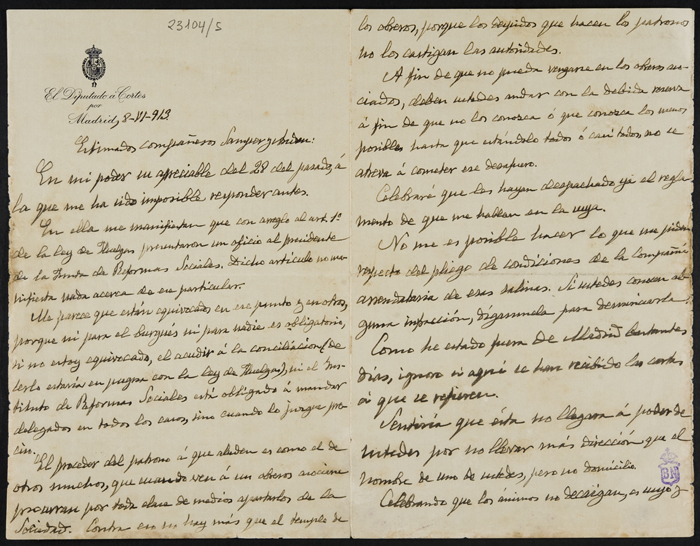 23104/5
El Diputado á Cortes
por
Madrid, 8-VI-913
Estimados compañeros Samper y
En mi poder su apreciable del 28 del pasado, á
la que me ha sido imposible responder antes.
En ella me manifiestan que con arreglo al art. 1º
de la ley de Huelgas presentaron un oficio al presidente
de la Junta de Reformas Sociales. Dicho artículo no ma-
nifiesta nada acerca de ese particular.
Me parece que están equivocados en ese punto y en otros,
porque ni para el burgués ni para nadie es obligatorio,
si no estoy equivocado, el acudir á la conciliación (de
serlo estarías en pugna con la ley de Huelgas), ni el Ins-
tituto de Reformas Sociales está obligado á mandar
delegados en todos los casos, sino cuando lo juzgue pre-
ciso.
El proceder del patrono á que aluden es como el de
otros muchos, que cuando ven á un obrero
procuran por toda clase de medios apartarlos de la
Sociedad. Contra eso no hay más que el temple de
los obreros, porque los despidos que hacen los patronos
no los castigan las autoridades.
A fin de que no pueda vengarse en los obreros aso-
ciados, deben ustedes andar con la debida reserva
á fin de que no los conozca ó que conozca los menos
posibles hasta que estándolo todos ó casi todos, no se
atreva á cometer ese desafuero.
Celebraré que les hayan despachado ya el regla-
mento de que me hablan en la suya.
No me es posible hacer lo que me piden
respecto del pliego de condiciones de la Compañía
arrendataria de esas salinas. Si ustedes conocen al-
guna infracción, díganmela para denunciarla.
Como he estado fuera de Madrid bastantes
días, ignoro si aquí se han recibido las cartas
á que se refieren.
Sentiría que ésta no llegara á poder de
ustedes por no llevar más dirección que el
nombre de uno de ustedes, pero no domicilio.
Celebrando que los ánimos no decaigan, es suyo y